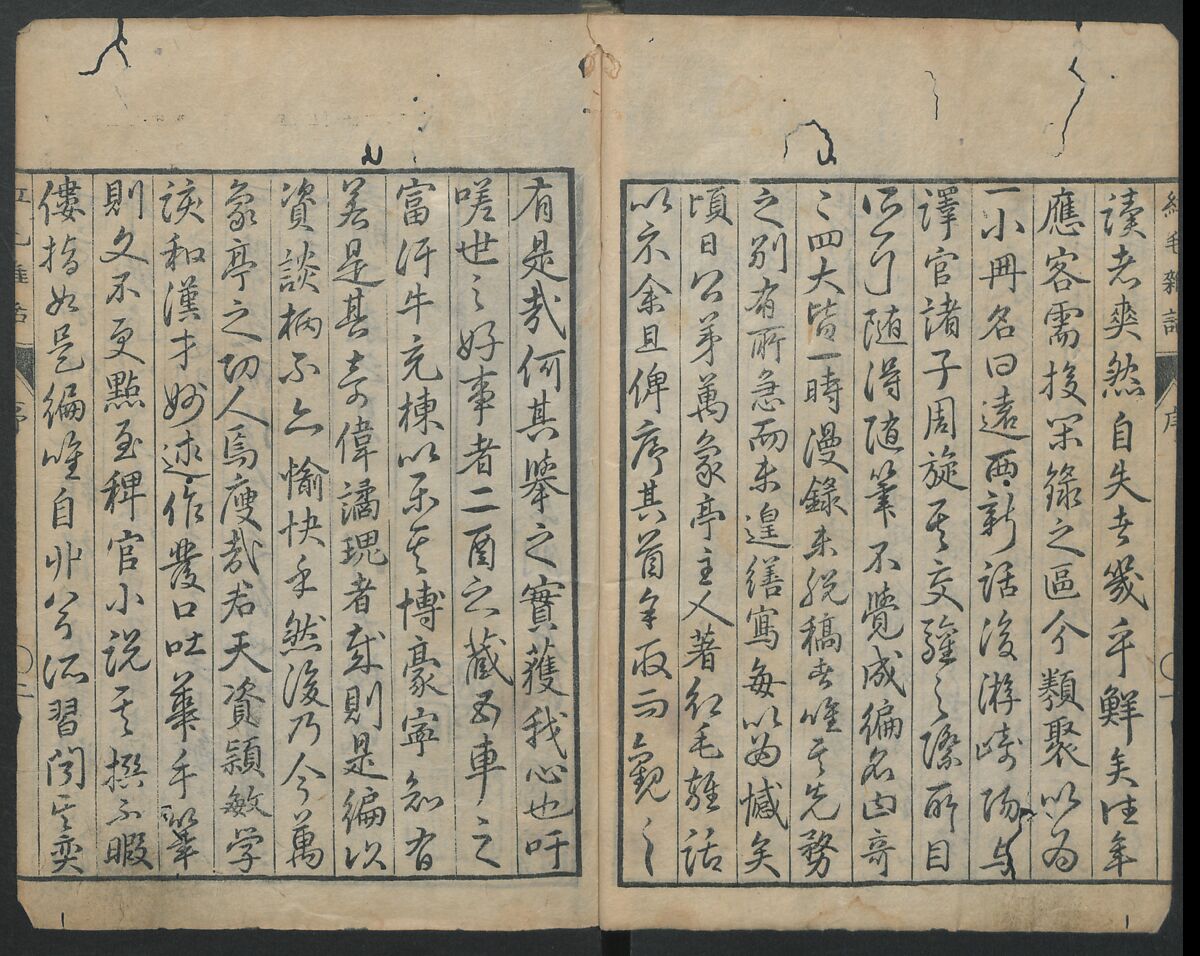 紅毛雜話
序
一
讀者爽然自失者幾乎鮮矣往年
應客需投閑錄之區分類聚以為
一小冊名曰遠西新話後游崎陽与
譯官諸子周旋其交難之際所目
随得随筆不覺成編名曰奇
々四大皆一時漫錄未脱稿者唯其先務
之別有所急而未遑繕寫每以为憾矣
頃日公弟萬象亭主人著紅毛雜話
以示余且俾序其首余取而觀之
有是哉何其舉之實獲我心也吁
嗟世之好事者二酉之藏五車之
富汗牛充棟以示其博豪寧知有
若是其奇偉譎瑰者哉則是編以
資談柄不亦愉快乎然後乃今萬
象亭之功人焉廋哉君天資穎敏学
該和漢才妙述作發口吐華手筆
則文不更點至稗官小説其撰不暇
僂指如是編唯自非公所習聞其奕
紅毛雜話
序
二